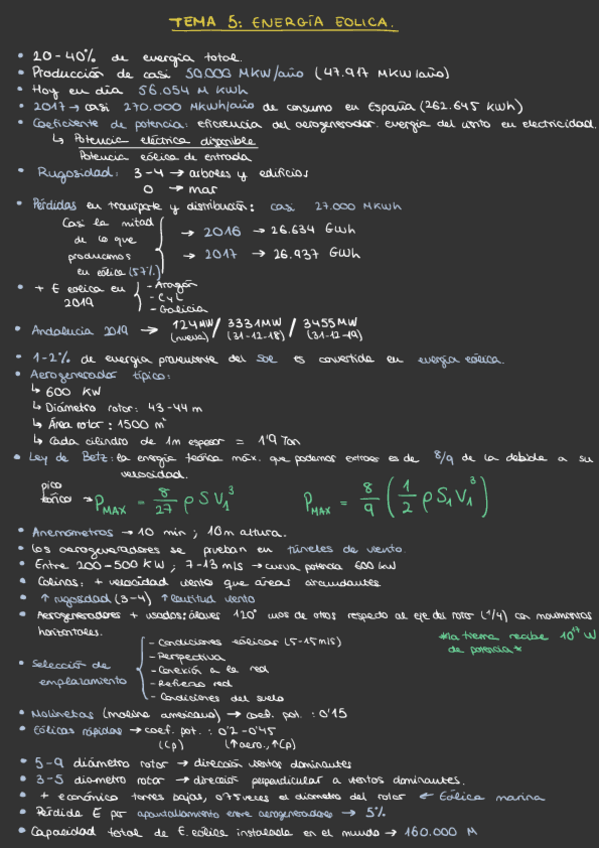 TEMA 5: ENERGÍA EOLICA.
• 20-40% de energia total.
• Producción de casi 50.000 MKW/año (47.917 MKW/año)
• Hoy en día 56.054 M KWh
• 2017 → casi 270.000 MKWh/año de consumo en España (262.645 KWh)
• Coeficiente de potencia: eficiencia del aerogenerador. energia del viento en electricidad.
↳ Potencia eléctrica disponible
Potencia eólica de entrada
• Rugosidad: 3-4 → arboles y edificios
0 → mar
• Pérdidas en transporte y distribución: casi 27.000 MKWh
Casi la mitad
de lo que → 2016 → 26.634 GWh
producimos → 2017 → 26.937 GWh
en eólica (57%)
• + E eolica en - Aragón
2019 - CyL
- Galicia
• Andalucia 2019 → 124MW / 3331MW / 3455MW
(nueva) (31-12-18) (31-12-19)
• 1-2% de energia proveniente del sol es convertida en energía eólica.
• Aerogenerador típico:
↳ 600 KW
↳ Diámetro rotor: 43-44 m
↳ Área rotor: 1500 m²
↳ Cada cilindro de 1m espesor = 1'9 Ton
• Ley de Betz: la energía teórica máx. que podemos extraer es de 8/9 de la debida a su
velocidad.
pico
teórico → PMAX = 8/27 ρ S V₁³ PMAX = 8/9 (1/2 ρ S₁ V₁³)
• Anemómetros → 10 min ; 10m altura.
• Los aerogeneradores se prueban en túneles de viento.
• Entre 200-500 KW ; 7-13 m/s → curva potencia 600 kW
• Colinas: + velocidad viento que áreas circundantes
• ↑ rugosidad (3-4) ↑ lentitud viento
• Aerogeneradores + usados: álaves 120° unos de otros respecto al eje del rotor (1/4) con movimientos
horizontales.
*la tierra recibe 10¹⁷ W
de potencia*
- Condiciones eólicas (5-15m/s)
- Perspectiva
• Selección de - Conexión a la red
emplazamiento - Refuerzo red
- Condiciones del suelo
• Molinetas (molino americano) → coef. pot. : 0'15
• Eólicas rápidas → coef. pot. : 0'2-0'45
(Cp) (↑aero., ↑Cp)
• 5-9 diámetro rotor → dirección vientos dominantes
• 3-5 diametro rotor → dirección perpendicular a vientos dominantes.
• + económico torres bajas, 0'75 veces el diametro del rotor ← Eólica marina
• Pérdida E por apantallamiento entre aerogeneradores → 5%
• Capacidad total de E. eólica instalada en el mundo → 160.000 M